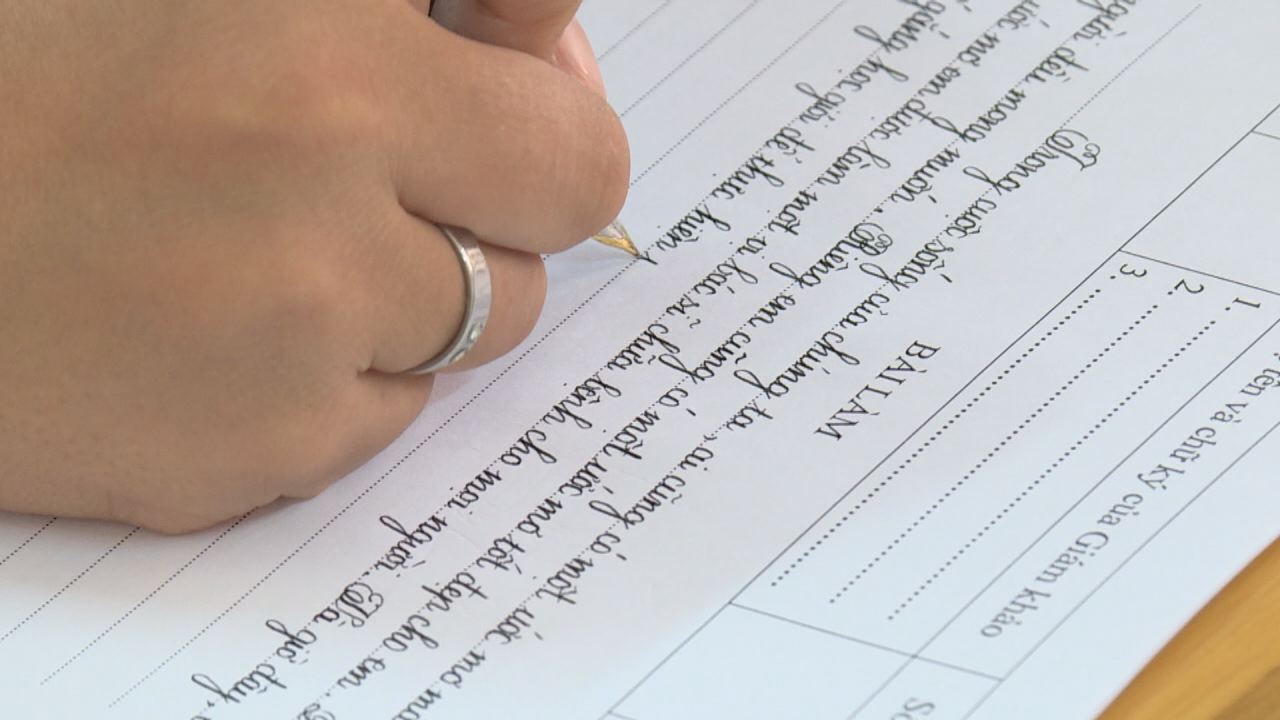 tên và chữ ký của Giám khảo
1.
2.
3.
BÀI LÀM
Trong cuộc sống của chúng ta, ai cũng có một ước mơ
người đều mong muốn. Riêng em cũng có một ước mơ tốt đẹp cho em.
ước mơ em được làm một vị bác sĩ chữa bệnh cho mọi người. Và giờ đây,
gắng học giỏi để thực hiện